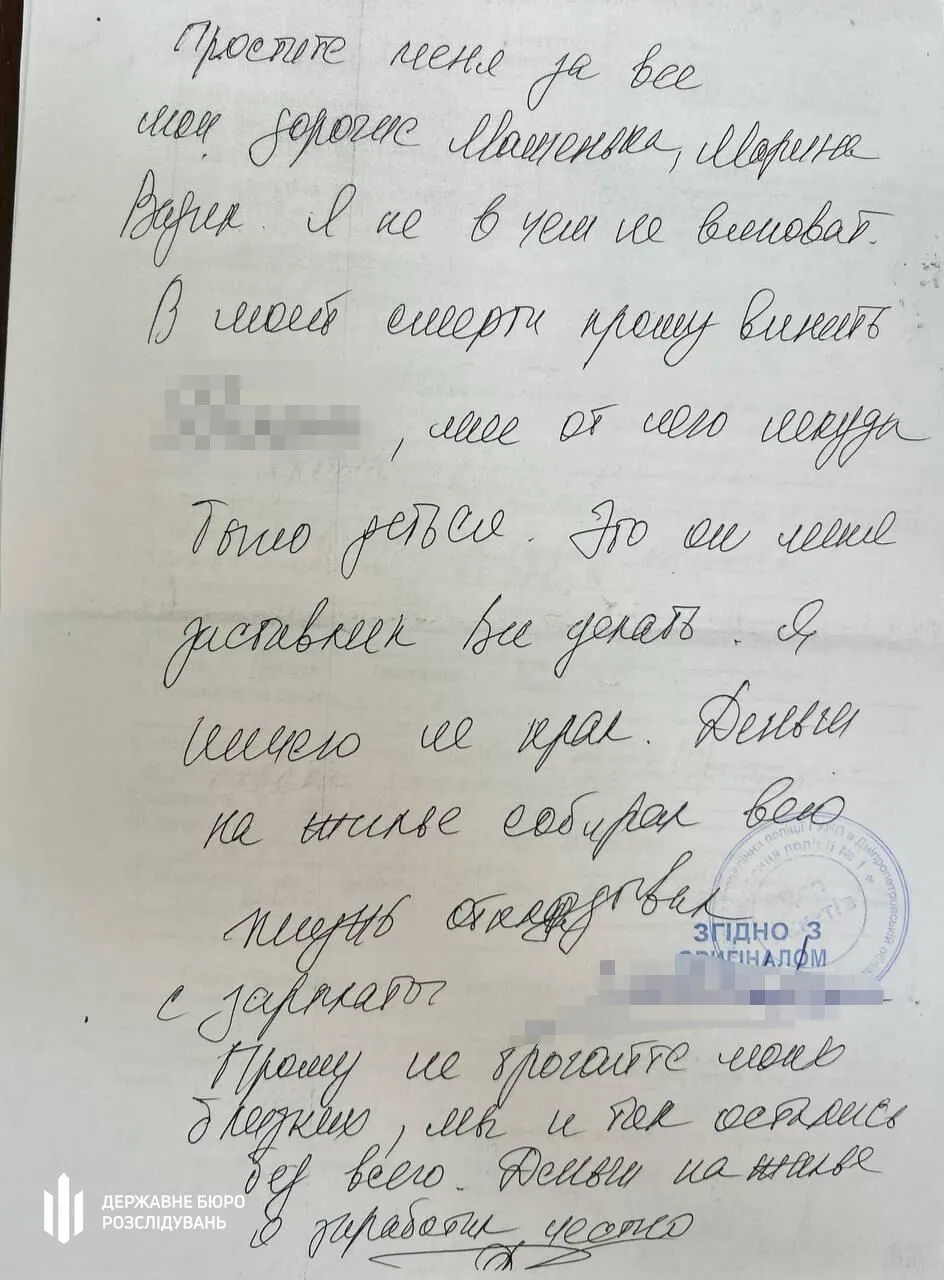 Простите меня за все
мои дорогие Машенька, Марина
Вадик. Я не в чем не виноват.
В моей смерти прошу винить
, мне от него некуда
было деться. Это он меня
заставлял Все делать. Я
ничего не крал. Деньги
на жилье собирал всю
жизнь откладывал
с зарплаты
ЗГІДНО З
ОРИГІНАЛОМ
Прошу не трогайте моих
близких, мы и так остались
без всего. Деньги на жилье
я заработал честно
ДЕРЖАВНЕ БЮРО
РОЗСЛІДУВАНЬ